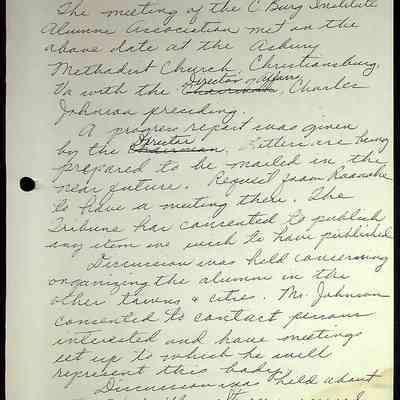 The meeting of the C'Burg Institute
Alumni Association met on the
above date at the Asbury
Methodist Church, Christiansburg,
Director of Affairs
Va with the Chairman, Charles
Johnson presiding.
A progress report was given
Director
by the Chairman. Letters are being
prepared to be mailed in the
near future. Request from Roanoke
to have a meeting there. The
Tribune has consented to publish
any item we wish to have published
Discussion was held concerning
organizing the alumni in the
other towns & cities. Mr. Johnson
consented to contact persons
interested and have meetings
set up to which he will
represent this body.
Discussion was held about